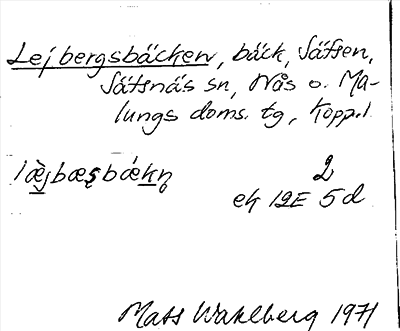 Lejbergsbäcken, bäck, Säfsen,
Säfsnäs sn, Nås o. Ma-
lungs doms. tg, Kopp.l
læ̀jbæʂbækn̥ 2
ek 12E 5d
Mats Wahlberg 1971